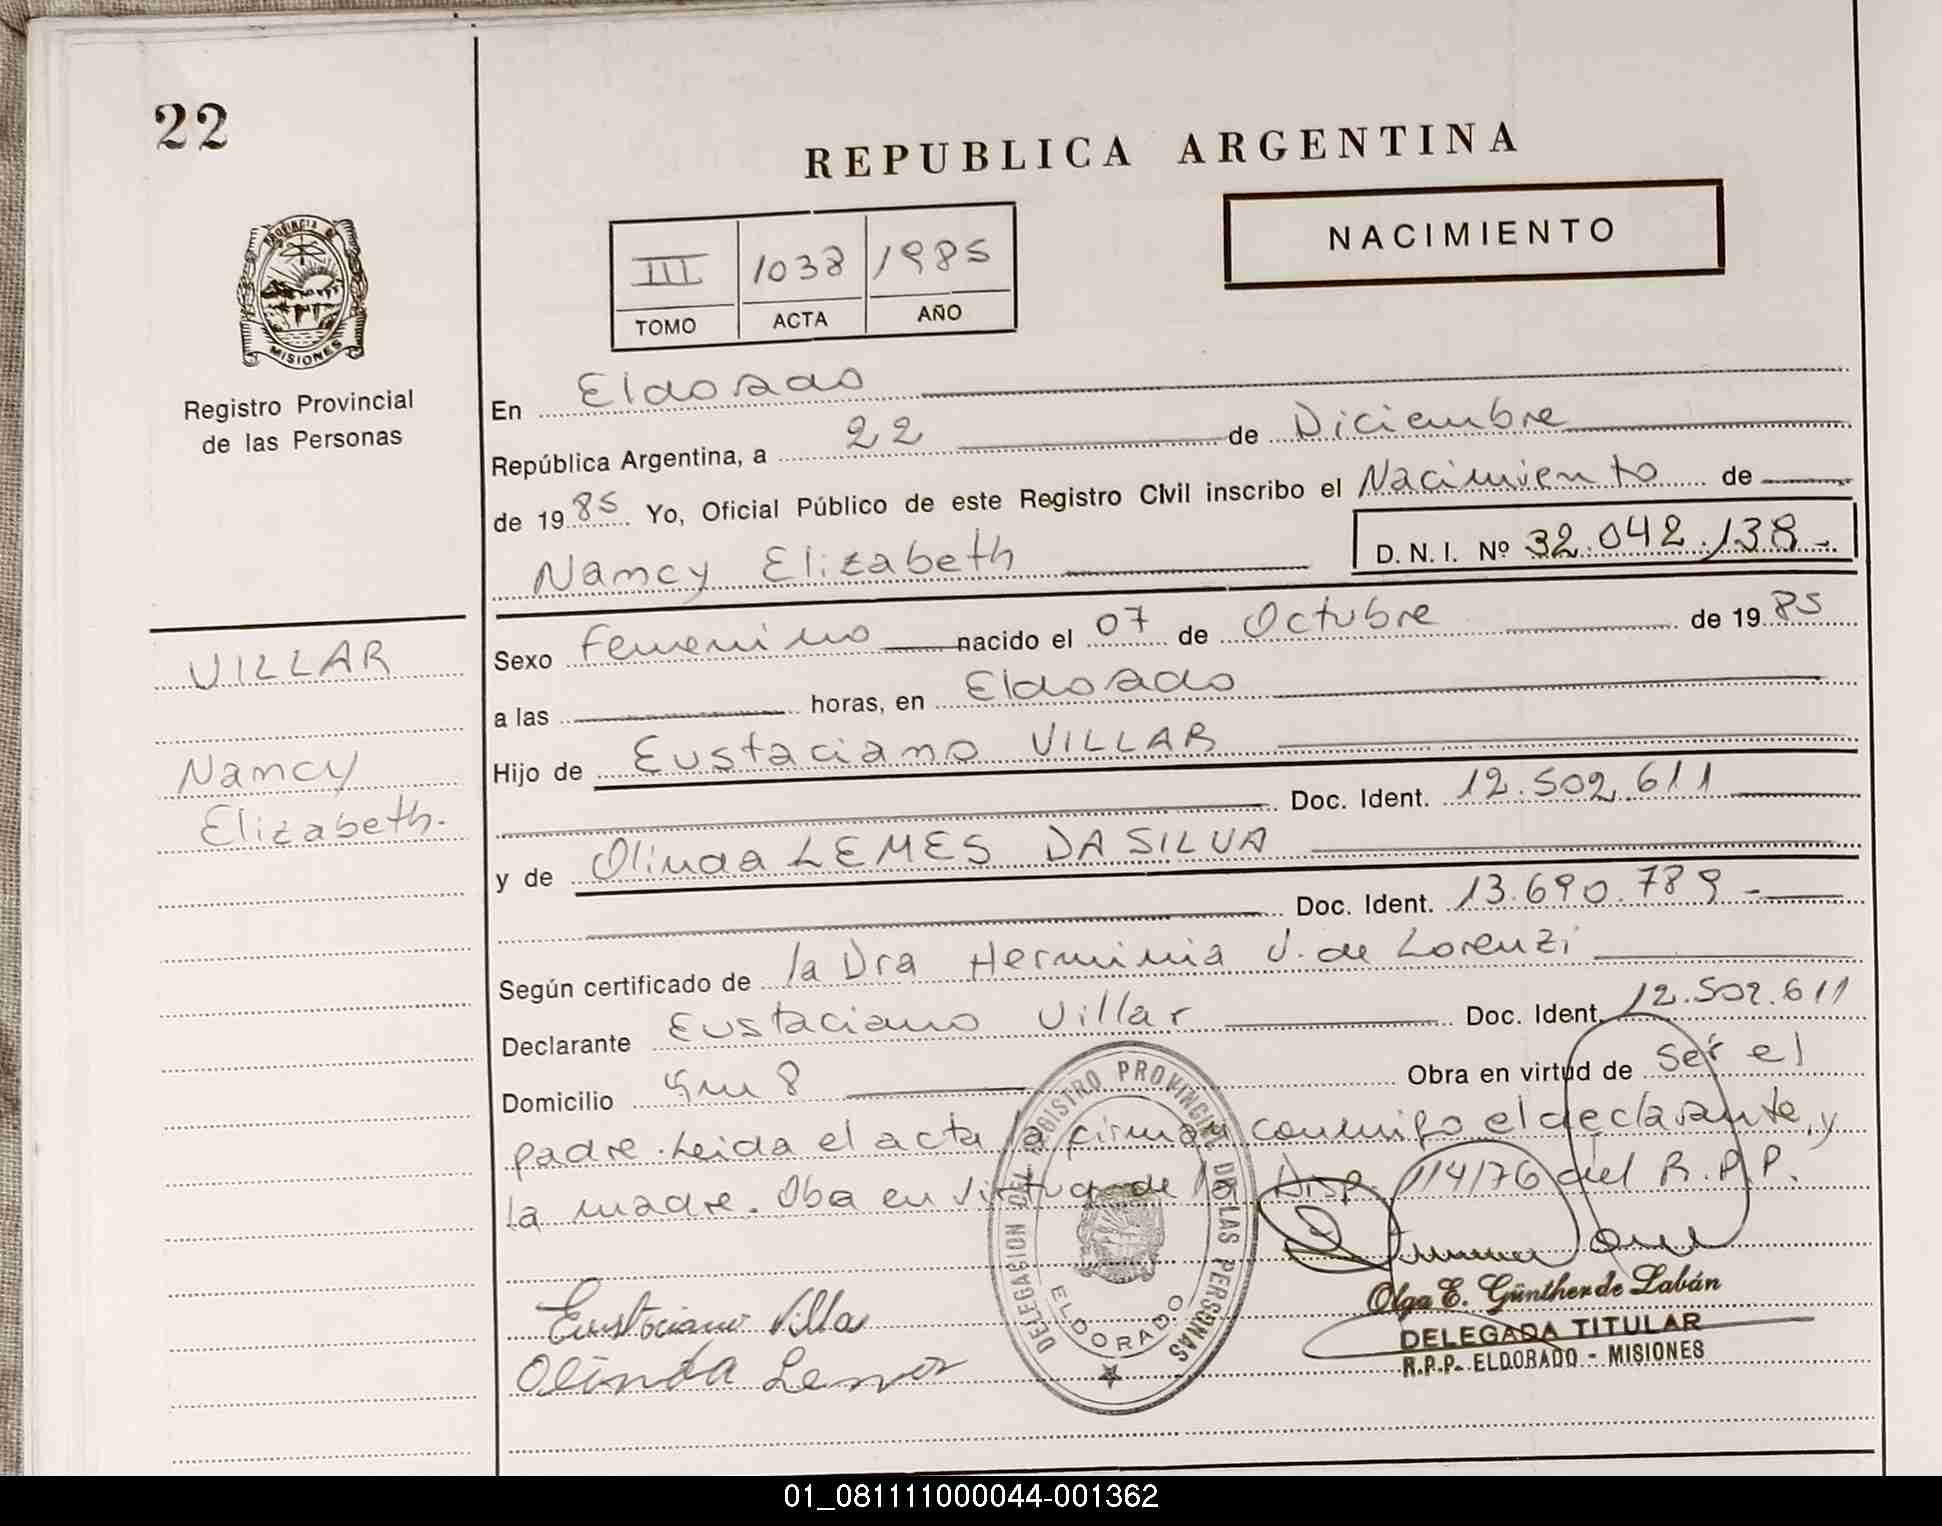 22
REPUBLICA ARGENTINA
NACIMIENTO
III 1038 1985
TOMO ACTA AÑO
PROVINCIA DE
MISIONES
Registro Provincial
de las Personas
En Eldorado
República Argentina, a 22 de Diciembre
de 1985 Yo, Oficial Público de este Registro Civil inscribo el Nacimiento de
Nancy Elizabeth D.N.I. Nº 32.042.138-
VILLAR
Nancy
Elizabeth.
Sexo Femenino nacido el 07 de Octubre de 1985
a las horas, en Eldorado
Hijo de Eustaciano VILLAR
Doc. Ident. 12.502.611
y de Olinda LEMES DA SILVA
Doc. Ident. 13.690.789-
Según certificado de la Dra Herminia J. de Lorenzi
Declarante Eustaciano Villar Doc. Ident. 12.502.611
Domicilio Km 8 Obra en virtud de ser el
padre. Leida el acta la firman conmigo el declarante, y
la madre. Oba en virtud de la Disp. 114/76 del R.P.P.
DELEGACION DEL REGISTRO PROVINCIAL DE LAS PERSONAS
ELDORADO
Eustaciano Villa
Olinda Lemes
Olga E. Günther de Labán
DELEGADA TITULAR
R.P.P. ELDORADO - MISIONES
01_081111000044-001362